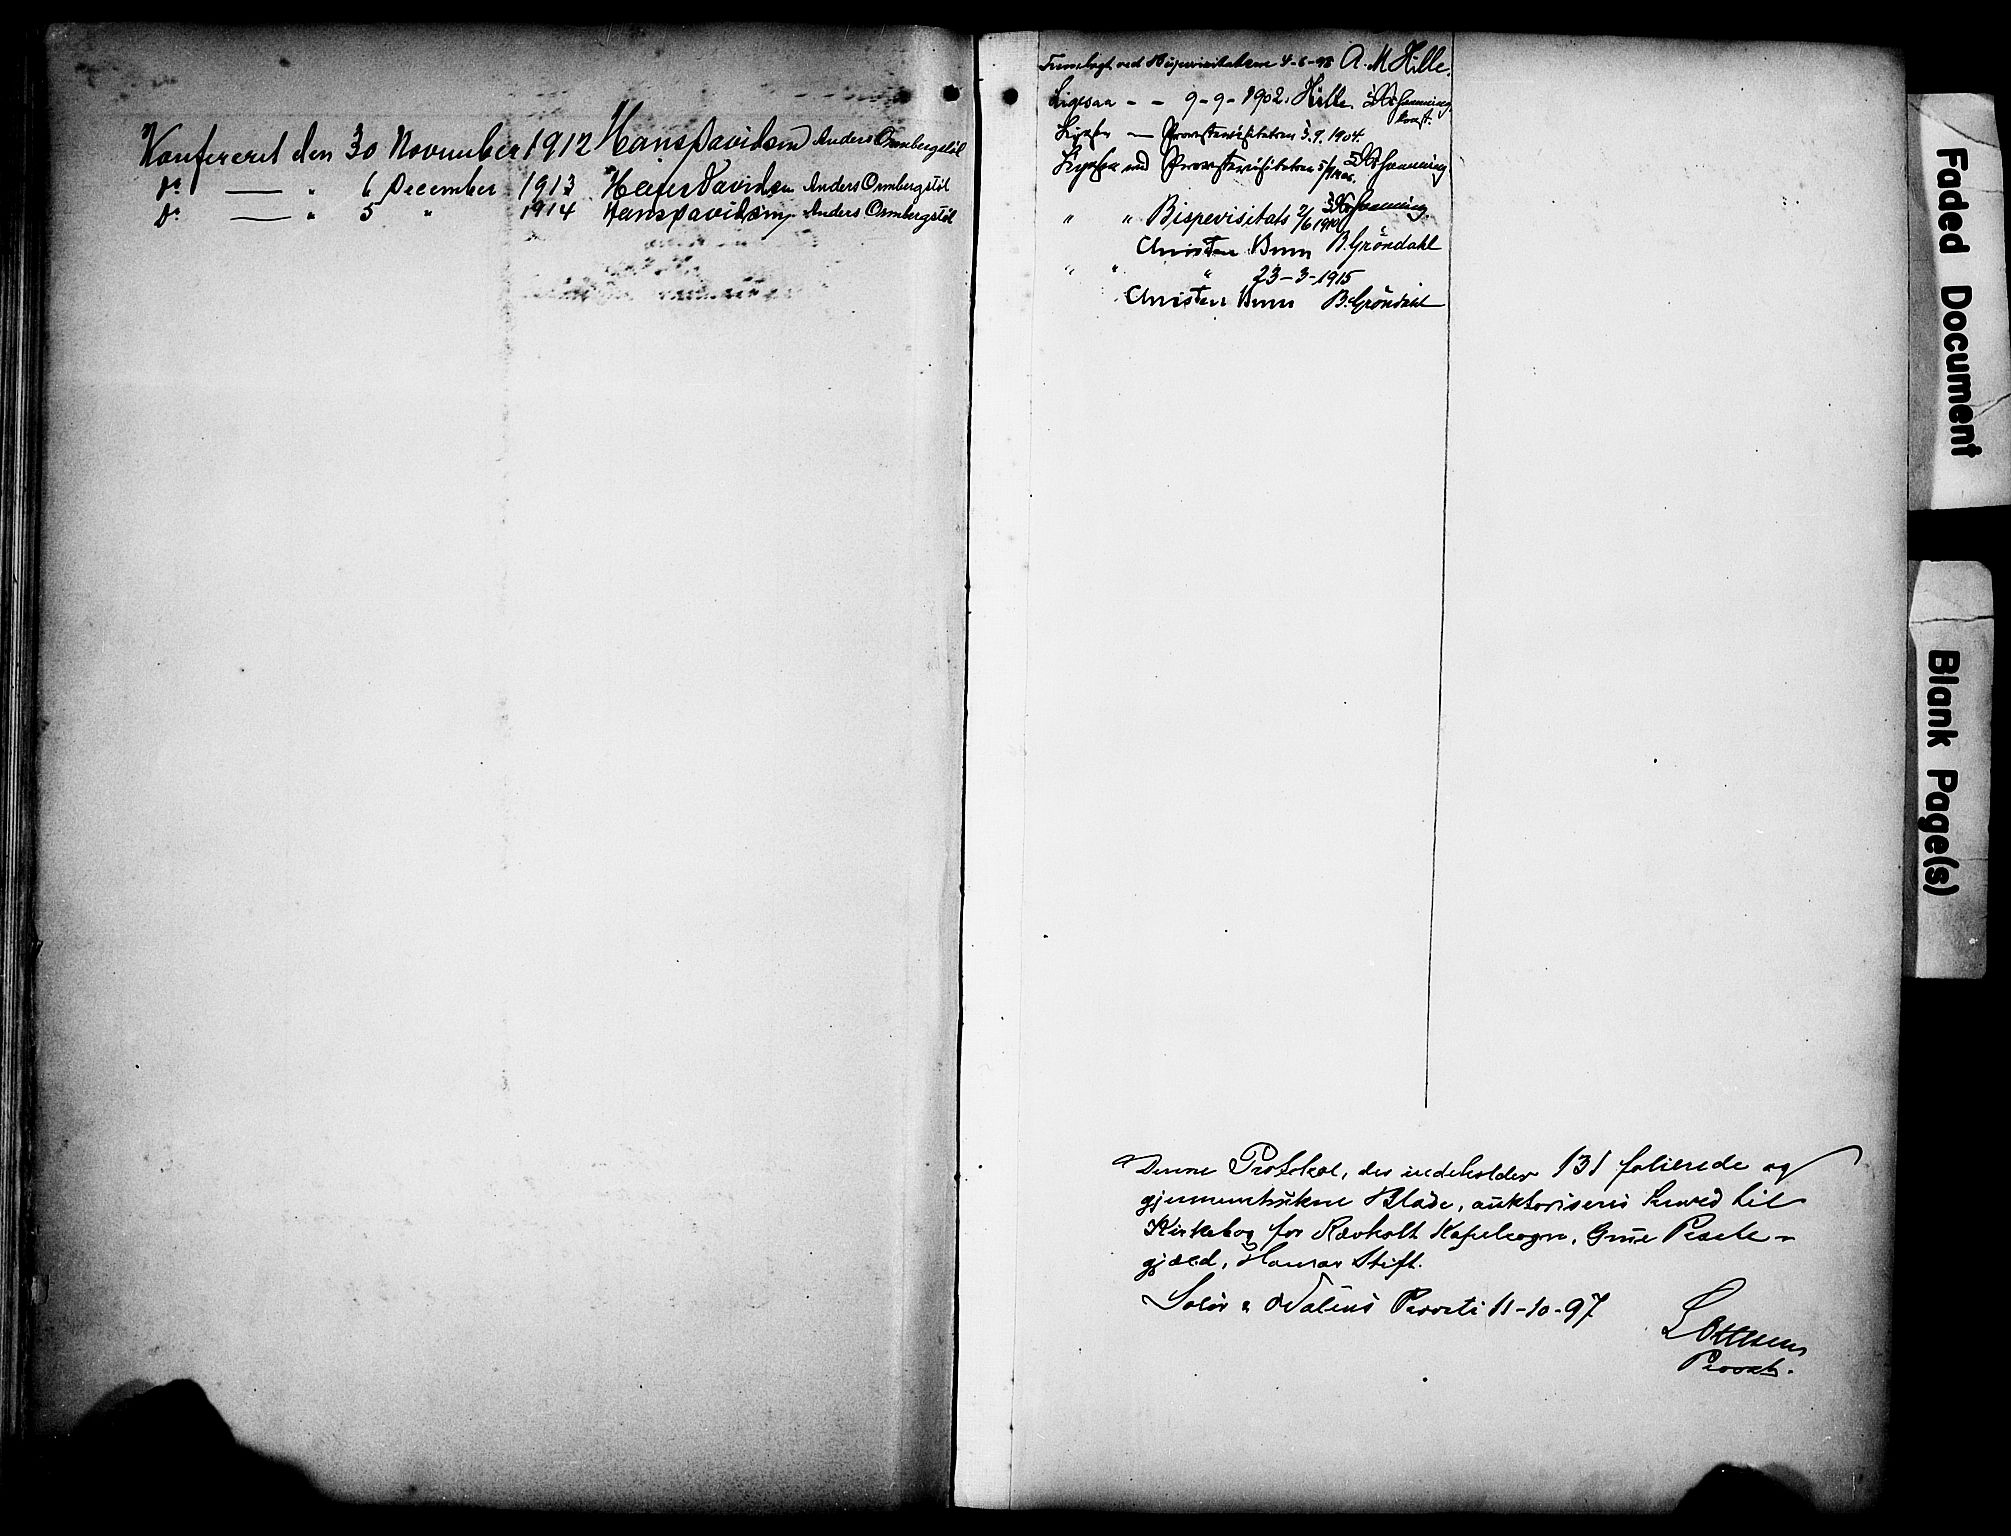 Konfereret den 30 November 1912 Hans Davidsen Anders Ormbergstöl
do — " 6 December 1913 Hans Davidsen Anders Ormbergstöl
do — " 5 " 1914 Hans Davidsen Anders Ormbergstöl
Fremlagt ved Bispevisitatsen 4-6-98 A. M Hille.
Ligesaa - - 9-9-1902. Hille.
Ligesaa — Provstevisitatsen 5.9.1904.
Ligesaa ved Provstevisitatsen
" " Bispevisitats 2/6 1910
Christen Brun B. Gröndahl
" " " 23-3-1915
Christen Brun B. Gröndahl
Denne Protokol, der indeholder 131 folierede og
gjennemtrukne Blade, auktoriseres herved til
Kirkebog for Rævholt Kapelsogn, Grue Præste-
gjæld, Hamar Stift.
Solør & Odalens Provsti 11-10-97
Provst.
Faded Document
Blank Page(s)